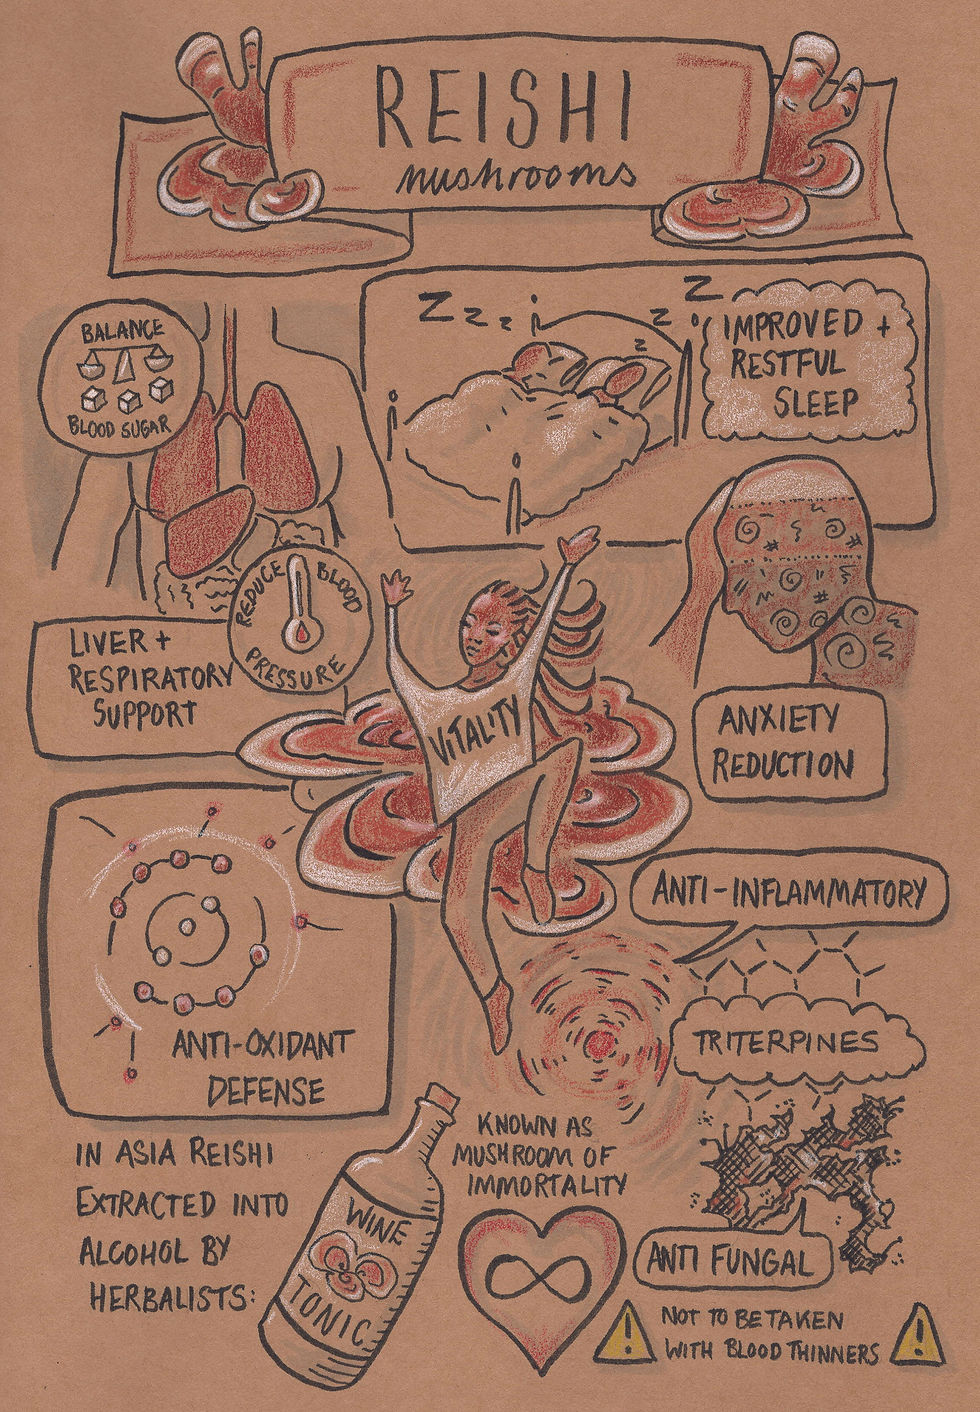 REISHI
mushrooms
BALANCE
BLOOD SUGAR
Z z z
Z
z
z
IMPROVED +
RESTFUL
SLEEP
REDUCE BLOOD
PRESSURE
LIVER +
RESPIRATORY
SUPPORT
VITALITY
ANXIETY
REDUCTION
ANTI-INFLAMMATORY
TRITERPINES
ANTI-OXIDANT
DEFENSE
IN ASIA REISHI
EXTRACTED INTO
ALCOHOL BY
HERBALISTS:
WINE
TONIC
KNOWN AS
MUSHROOM OF
IMMORTALITY
ANTI FUNGAL
! NOT TO BE TAKEN !
WITH BLOOD THINNERS